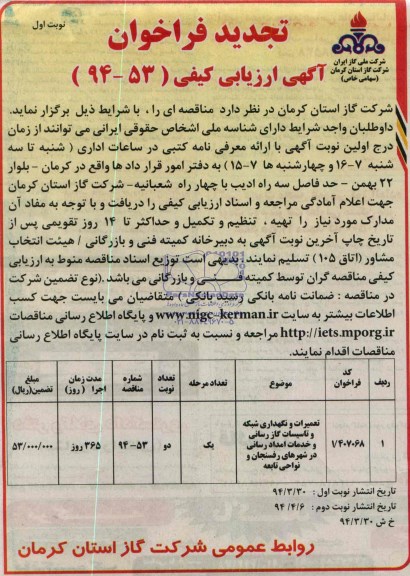 نوبت اول
تجدید فراخوان
شرکت ملی گاز ایران
شرکت گاز استان کرمان
(سهامی خاص)
آگهی ارزیابی کیفی ( ۵۳ -۹۴ )
شرکت گاز استان کرمان در نظر دارد مناقصه ای را ، با شرایط ذیل برگزار نماید.
داوطلبان واجد شرایط دارای شناسه ملی اشخاص حقوقی ایرانی می توانند از زمان
درج اولین نوبت آگهی با ارائه معرفی نامه کتبی در ساعات اداری ( شنبه تا سه
شنبه ۷-۱۶ و چهارشنبه ها ۷-۱۵) به دفتر امور قرار داد ها واقع در کرمان - بلوار
۲۲ بهمن - حد فاصل سه راه ادیب با چهار راه شعبانیه- شرکت گاز استان کرمان
جهت اعلام آمادگی مراجعه و اسناد ارزیابی کیفی را دریافت و با توجه به مفاد آن
مدارک مورد نیاز را تهیه ، تنظیم و تکمیل و حداکثر تا ۱۴ روز تقویمی پس از
تاریخ چاپ آخرین نوبت آگهی به دبیرخانه کمیته فنی و بازرگانی / هیئت انتخاب
مشاور (اتاق ۱۰۵) تسلیم نمایند. بدیهی است توزیع اسناد مناقصه منوط به ارزیابی
کیفی مناقصه گران توسط کمیته فنی و بازرگانی می باشد .(نوع تضمین شرکت
در مناقصه : ضمانت نامه بانکی رسید بانکی) متقاضیان می بایست جهت کسب
اطلاعات بیشتر به سایت www.nigc-kerman.ir و پایگاه اطلاع رسانی مناقصات
http://iets.mporg.ir مراجعه و نسبت به ثبت نام در سایت پایگاه اطلاع رسانی
مناقصات اقدام نمایند.
ردیف | کد فراخوان | موضوع | تعداد مرحله | تعداد نوبت | شماره مناقصه | مدت زمان اجرا ( روز) | مبلغ تضمین(ریال)
۱ | ۱/۴۰۷۰۶۸ | تعمیرات و نگهداری شبکه و تاسیسات گاز رسانی و خدمات امداد رسانی در شهرهای رفسنجان و نواحی تابعه | یک | دو | ۵۳-۹۴ | ۳۶۵ روز | ۵۳/۰۰۰/۰۰۰
تاریخ انتشار نوبت اول : ۹۴/۳/۳۰
تاریخ انتشار نوبت دوم : ۹۴/۴/۶
خ ش ۹۴/۳/۳۰
روابط عمومی شرکت گاز استان کرمان